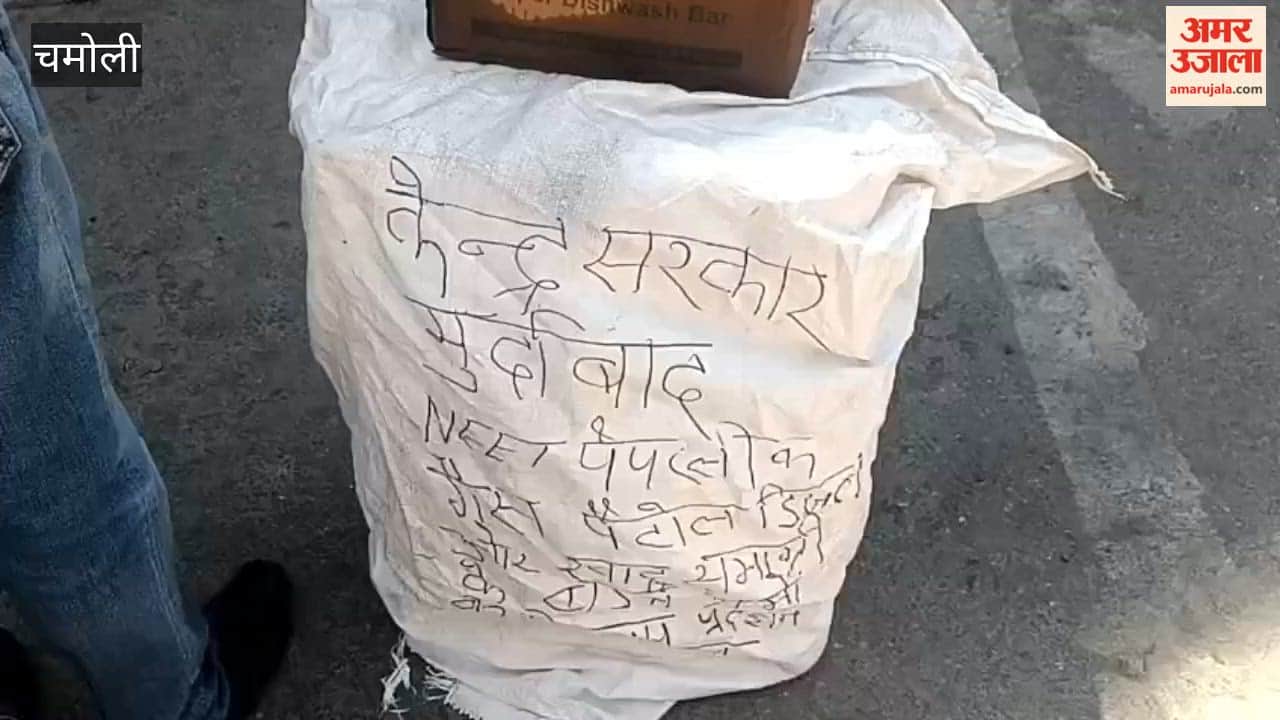 चमोली
अमर
उजाला
amarujala.com
Dishwash Bar
केन्द्र सरकार
मुर्दाबाद
NEET पेपरलीक
गैस पैटोल डिजल
और खाद्य
प्रदर्शन